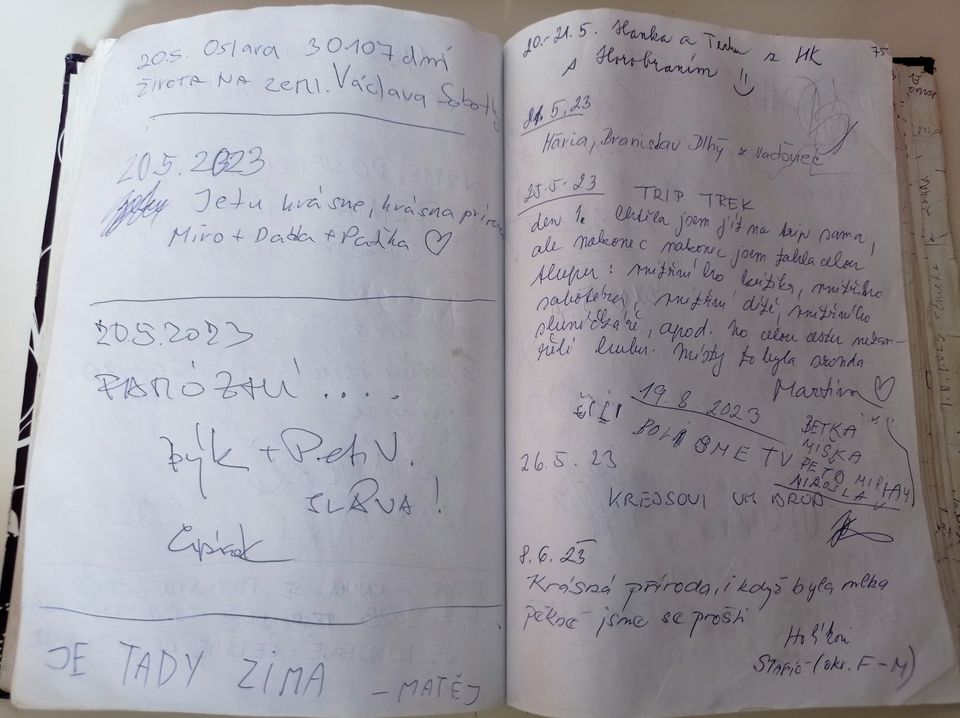 20.5. Oslava 30107 dní
života na zemi. Václava Sobotky
20.5.2023
Je tu krásne, krásna príroda
Miro + Dada + Paťka ♡
20.5.2023
Býk + Petr V.
SLÁVA!
JE TADY ZIMA
- MATĚJ
75
20.-21.5. Hanka a Terka z HK
s Horobraním
21.5.23
Mária, Branislav Dlhý z Vaďovec
25.5.23 TRIP TREK
den 1. Chtěla jsem jít na trip sama,
ale nakonec nakonec jsem vzala celou
skupu: vnitřního kritika, vnitřního
sabotéra, vnitřní dítě, vnitřního
sluníčkáře, apod. no celou cestu nezavřeli
hubu. Místy to byla sranda.
Martina ♡
19.8.2023
BOLI SME TU
BETKA
MIŠKA
PEŤO
26.5.23
KREJSOVI UH BROD
8.6.23
Krásná příroda, i když byla mlha
pěkně jsme se prošli
Staříč (okr. F-M)